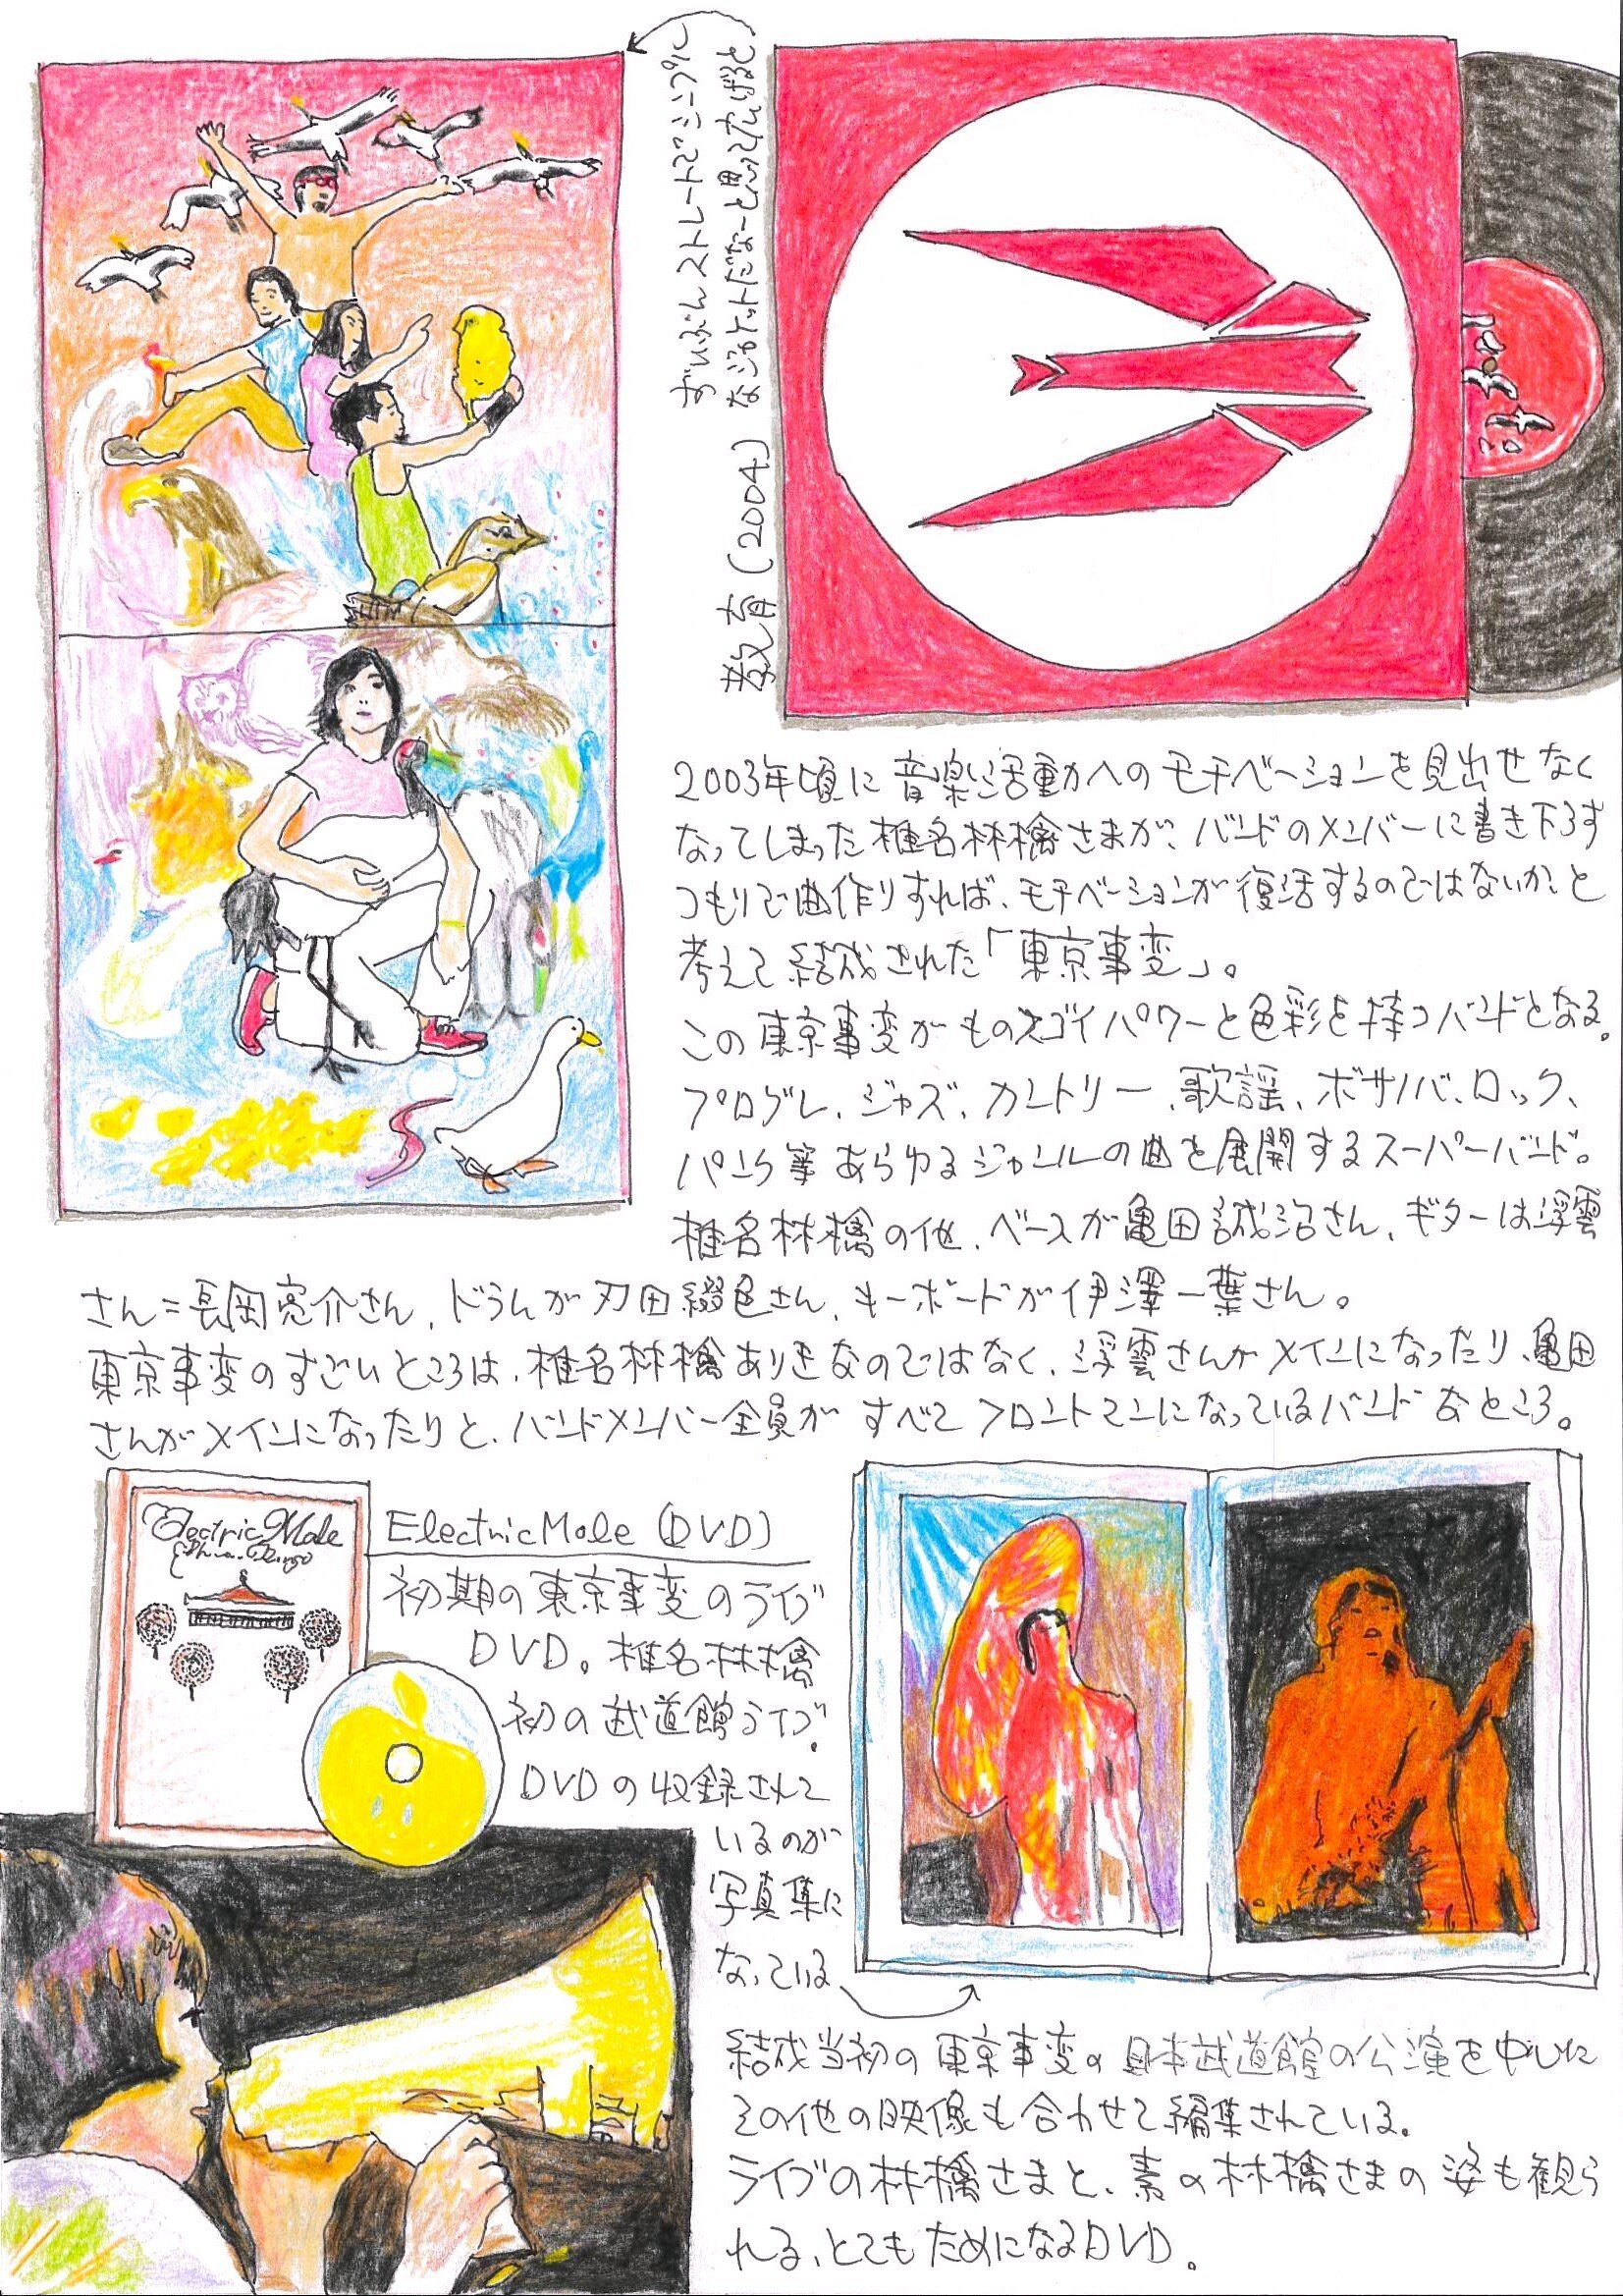 ずいぶんストレートでシンプル
なジャケットだなーと思って広げると
教育(2004)
2003年頃に音楽活動へのモチベーションを見出せなく
なってしまった椎名林檎さまが、バンドのメンバーに書き下ろす
つもりで曲作りすれば、モチベーションが復活するのではないか、と
考えて結成された「東京事変」。
この東京事変がものスゴイパワーと色彩を持つバンドとなる。
プログレ、ジャズ、カントリー、歌謡、ボサノバ、ロック、
パンク等あらゆるジャンルの曲を展開するスーパーバンド。
椎名林檎の他、ベースが亀田誠治さん、ギターは浮雲
さん=長岡亮介さん、ドラムが刃田綴色さん、キーボードが伊澤一葉さん。
東京事変のすごいところは、椎名林檎ありきなのではなく、浮雲さんがメインになったり、亀田
さんがメインになったりと、バンドメンバー全員がすべてフロントマンになっているバンドなところ。
Electric Mole
ElectricMole (DVD)
初期の東京事変のライブ
DVD。椎名林檎
初の武道館ライブ。
DVDの収録されて
いるのが
写真集に
なっている
結成当初の東京事変の日本武道館の公演を中心に
その他の映像も合わせて編集されている。
ライブの林檎さまと、素の林檎さまの姿も観ら
れる、とてもためになるDVD。